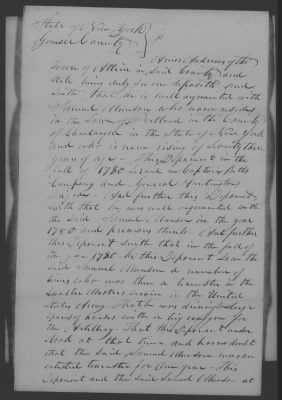 State of New York
Genesee County
Amos Andrews of the
Town of Attica in Said County and
state being duly sworn deposeth and
Saith that he is well acquainted with
Samuel Munson who now resides
in the Town of Villand in the County
of Chautauque in the State of New York
and who is now rising of Seventy three
years of age - This Deponent in the
fall of 1780 Served in Captain
Company and General
And further this Deponent
saith that he was well acquainted with
the Said Samuel Munson in the year
1780 and previous thereto - And further
this Deponent Saith that in the fall of
the year 1780 he this Deponent Saw the
Said Samuel Munson a number of
times who was then a teamster in the
Quarter Masters service in the United
States Army. That he was driving
span of horses with a big waggon for
the Artillery. That this Deponent under
stood at that time and has no doubt
that the Said Samuel Munson was an
enlisted teamster for One year - This
Deponent and the Said Samuel Munson at